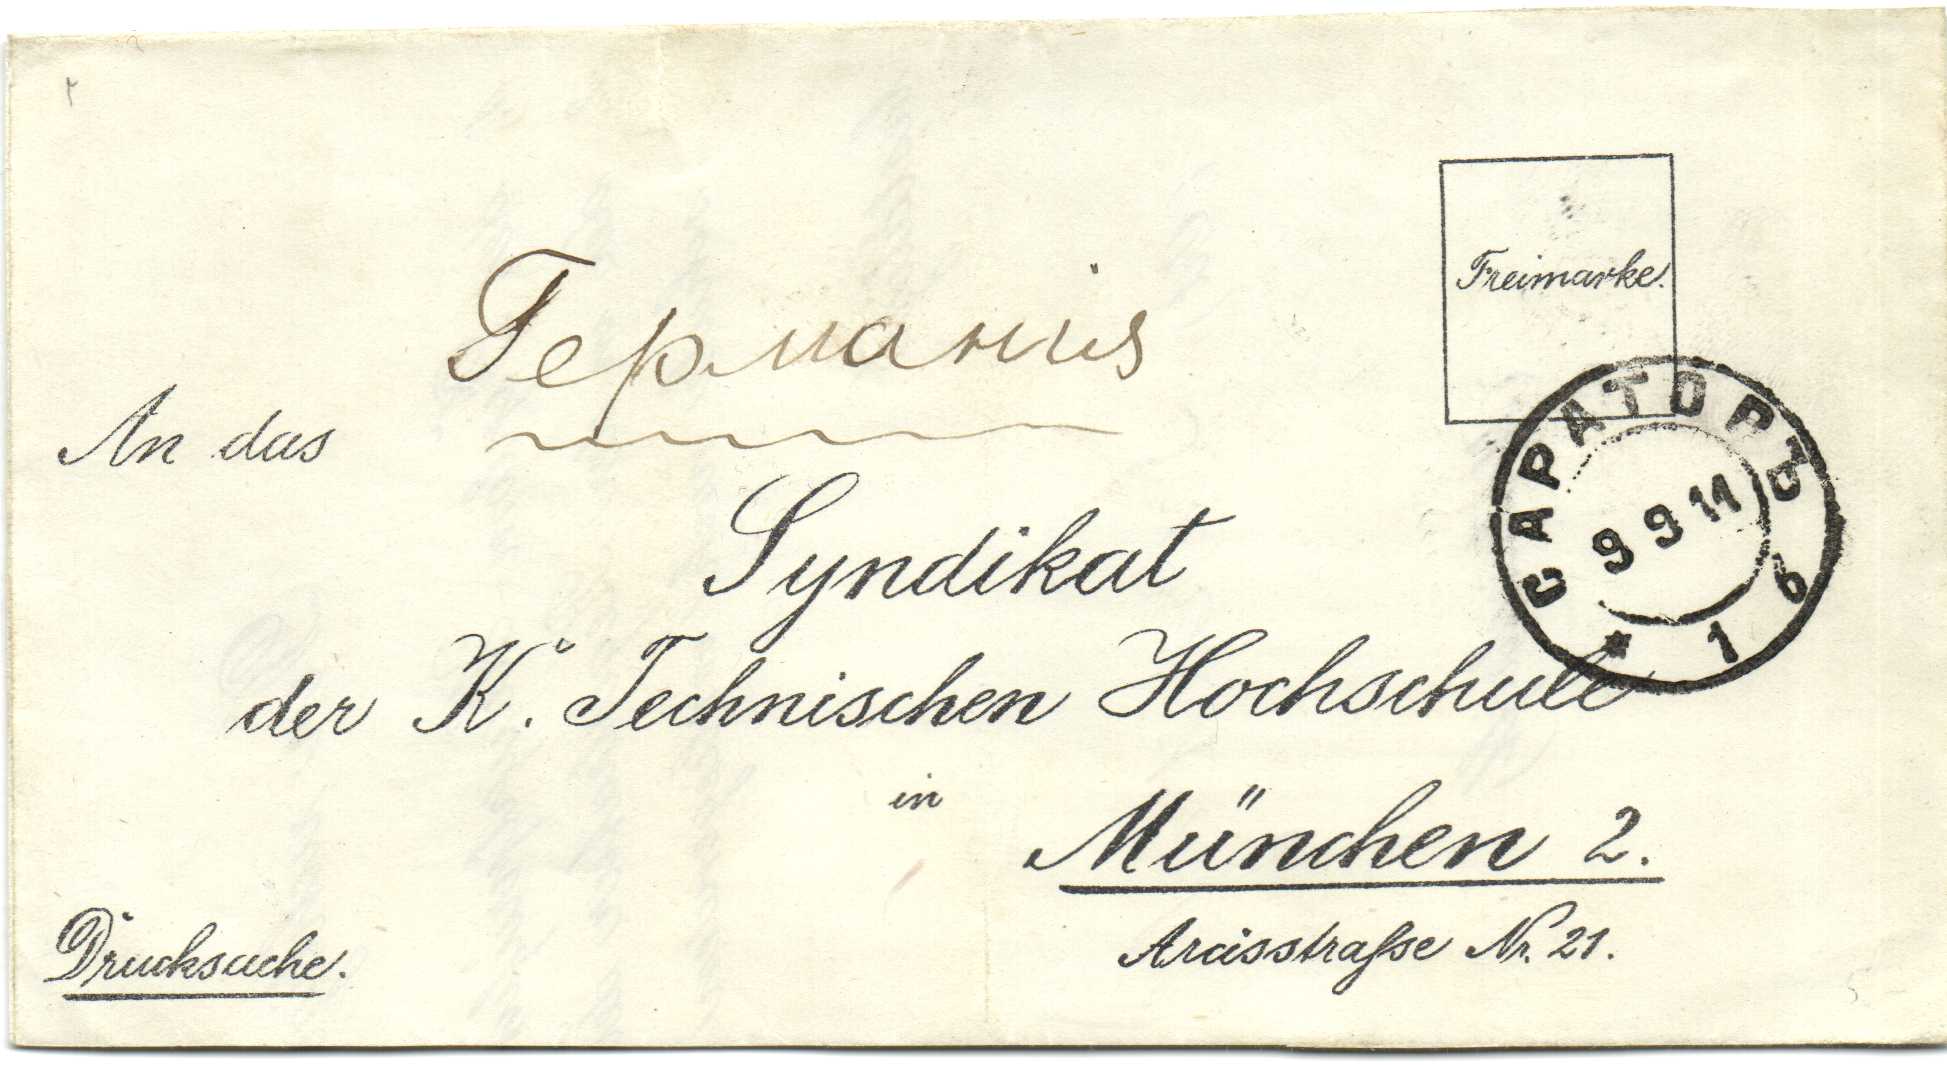 Freimarke.
Германія
САРАТОВЪ
9 9 11
* 1 б
An das
Syndikat
der K. Technischen Hochschule
in
München 2.
Arcisstraſse Nr. 21.
Drucksache.